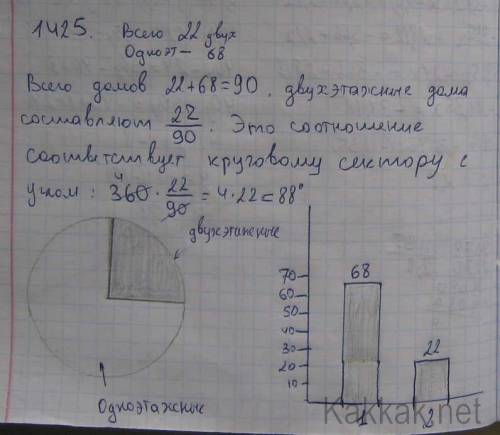 1425. Всего 22 двух
Одноэт — 68
Всего домов 22+68=90, двухэтажные дома
составляют 22/90. Это соотношение
соответствует круговому сектору с
углом: 360 · 22/90 = 4·22=88°
4
двухэтажные
Одноэтажные
70
60
50
40
30
20
10
68
22
1
2
Kakkak.net